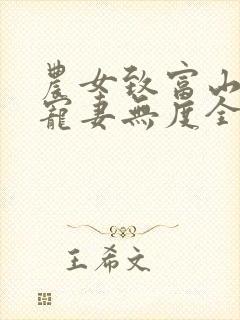 農女致富山
寵妻無度全
王希文